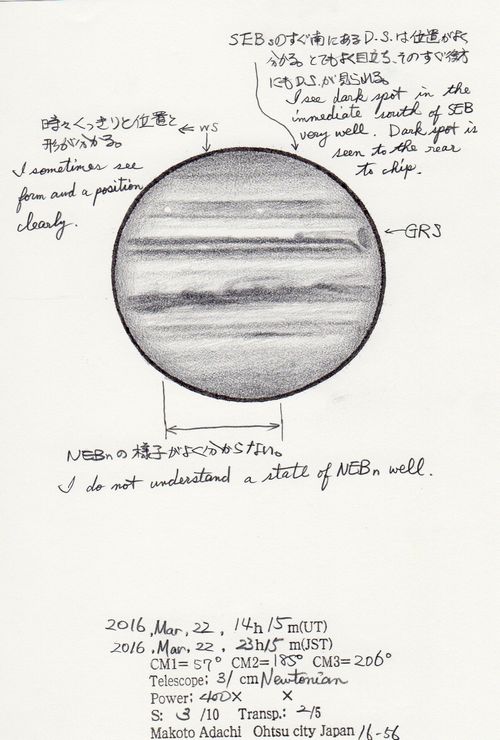 SEBsのすぐ南にあるD.S.は位置がよく
分かる。とてもよく目立ち、そのすぐ後方
にもD.S.が見られる。
I see dark spot in the
immediate south of SEB
very well. Dark spot is
seen to the rear
to chip.
時々くっきりと位置と
形が分かる。
← WS
I sometimes see
form and a position
clearly.
← GRS
NEBnの様子がよく分からない。
I do not understand a state of NEBn well.
2016, Mar, 22, 14h 15m(UT)
2016, Mar, 22, 23h 15m(JST)
CM1= 57° CM2= 185° CM3= 206°
Telescope; 31 cm Newtonian
Power; 400× ×
S: 3 /10 Transp.: 2/5
Makoto Adachi Ohtsu city Japan 16-56